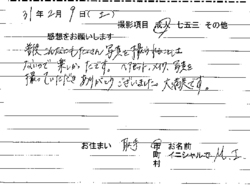 31年2月9日(土)
撮影項目 成人 七五三 その他
感想をお願いします
普段こんなにもたくさん写真を撮る機会は
ないので楽しかったです。ヘアセット、メイク、写真を
撮っていただきありがとうございました。大満足です。
お住まい 取手 市町村 お名前 イニシャル可 M.I